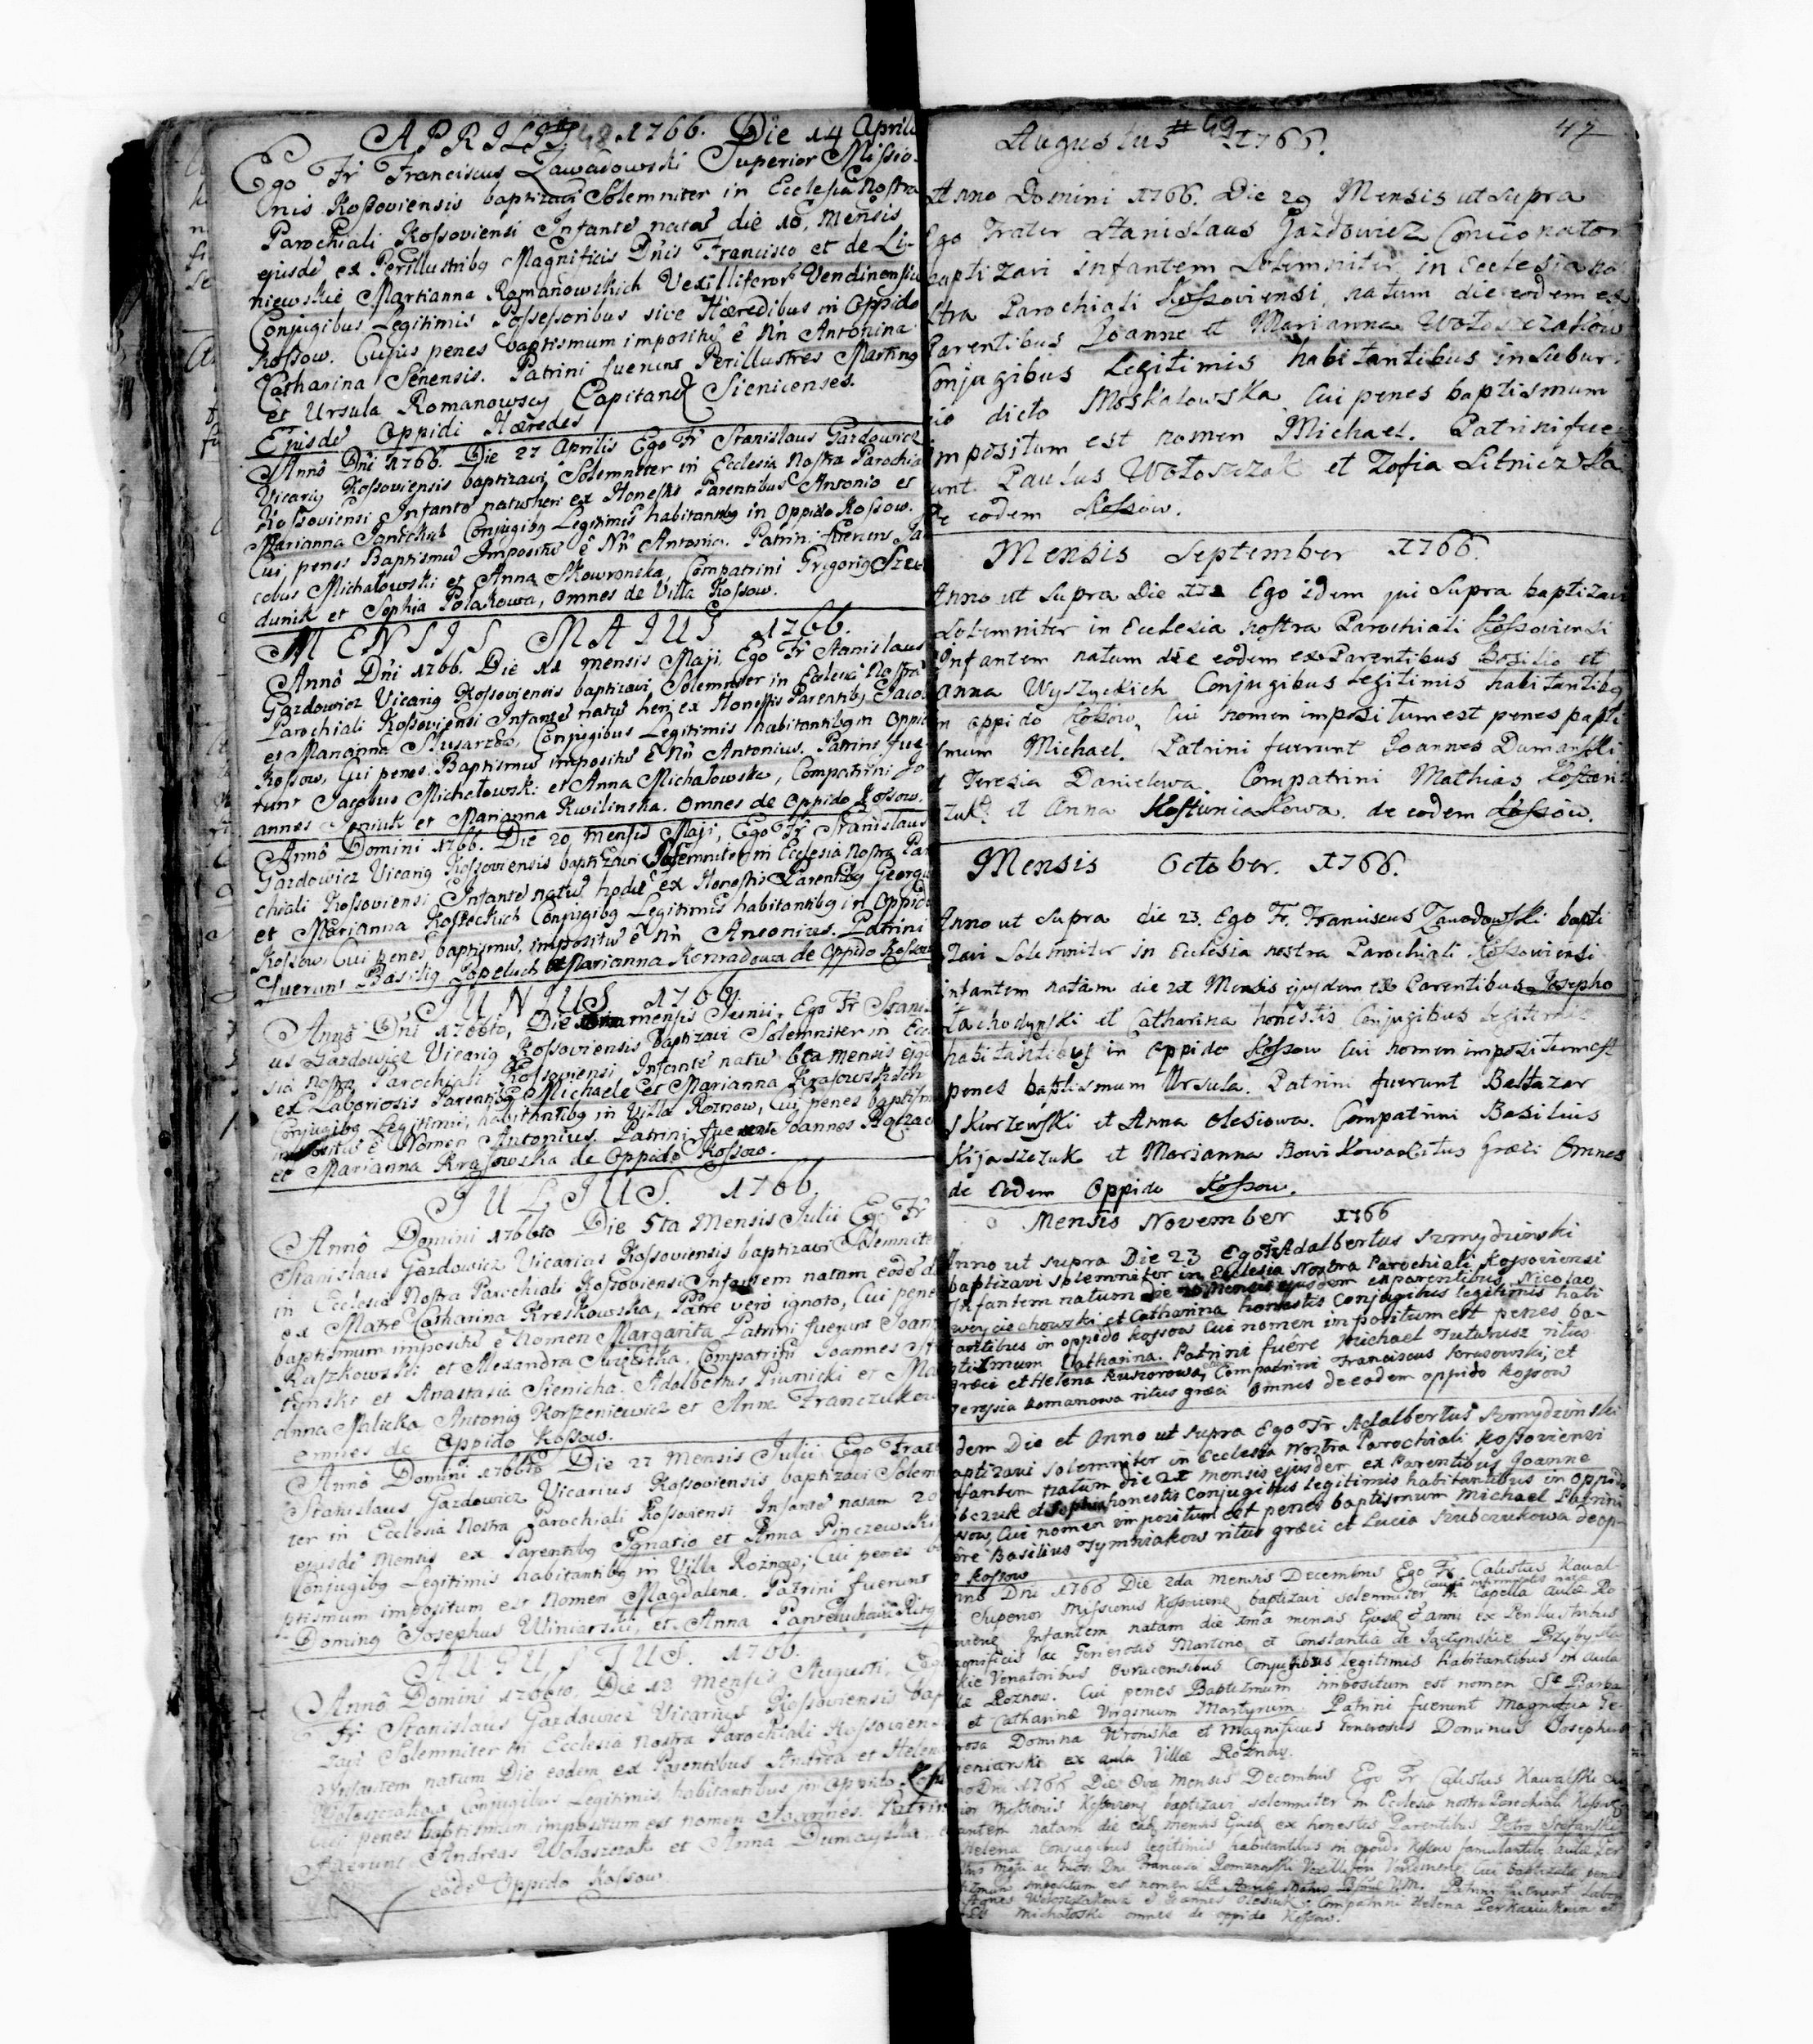 APRILIS 48 1766. Die 14 Aprilis
Ego Fr Franciscus Zawadowski Superior Missio-
nis Kossoviensis baptizavi Solemniter in Ecclesia Nostra
Parochiali Kossoviensi Infantē natā die 10, Mensis
ejusdē ex Perillustribq Magnificis Dn̄is Francisco et de Li-
niewskie Martianna Romanowskich Vexilliferor Vendinensiu
Conjugibus Legitimis Possessoribus sive Hæredibus in Oppido
Kossow. Cujus penes baptismum impositū ē Nn̄ Antonina
Catharina Senensis. Patrini fuerunt Perillustres Martinq
et Ursula Romanowscy Capitane Sienicenses.
Ejusdē Oppidi Hæredes
Annô Dn̄i 1766. Die 27 Aprilis Ego Fr Stanislaus Gazdowicz
Vicariq Kossoviensis baptizavi Solemniter in Ecclesia Nostra Parochia
Kossoviensi Infantē natū heri ex Honestis Parentibus Antonio et
Marianna Conjugibq Legitimis habitantibq in Oppido Kossow.
Cui penes Baptismū Impositū ē Nn̄ Patrin. fuerunt Ja
cobus Michałowski et Anna Skowronska, Compatrini Grigoriq Szew
dunik et Sophia Polakowa, omnes de Villa Kossow.
MENSIS MAJUS 1766.
Annô Dn̄i 1766. Die 11 mensis Maji, Ego Fr Stanislaus
Gazdowicz Vicariq Kossoviensis baptizavi Solemniter in Ecclesia Nostra
Parochiali Kossoviensi Infantē natū heri ex Honestis Parentibq Jacob
et Marianna Conjugibus Legitimis habitantibq in Oppid
Kossow, Cui penes Baptismū impositū ē Nn̄ Antonius. Patrini fue-
runt Jacobus Michałowski et Anna Michałowska, Compatrini Jo-
annes Seniuk et Marianna Kwilinska. Omnes de Oppido Kossow.
Annô Domini 1766. Die 20 mensis Maji, Ego Fr Stanislaus
Gazdowicz Vicariq Kossoviensis baptizavi Solemniter in Ecclesia Nostra Par
chiali Kossoviensi Infantē natū hodiē ex Honestis Parentibq Georgi
et Marianna Kossockich Conjugibq Legitimis habitantibq in Oppid
Kossow, Cui penes baptismū impositū ē Nn̄ Patrini
fuerunt Basiliq Popeluch et Marianna Konradowa de Oppido Kossow
JUNIUS 1766
Annô Dn̄i 1766to, Die mensis Junii, Ego Fr Stanis
us Gazdowicz Vicariq Kossoviensis baptizavi Solemniter in Eccl
sia nostra Parochiali Kossoviensi Infantē natū 6ta mensis ejq
ex Laboriosis Parentibq Michaele et Marianna Krasowskich
Conjugibq Legitimis, habitantibq in Villa Roznow, Cui penes baptism
impositū ē Nomen Antonius. Patrini fuerunt Joannes
et Marianna Krasowska de Oppido Kossow.
JULIUS. 1766.
Annô Domini 1766to Die 5ta Mensis Julii Ego Fr
Stanislaus Gazdowicz Vicarius Kossoviensis baptizavi Solemnite
in Ecclesia Nostra Parochiali Kossoviensi Infantem natam eodē d
ex Matre Catharina Kreskowska, Patre verò ignoto, Cui pene
baptismum impositū ē Nomen Margarita Patrini fuerunt Joann
Raszkowski et Alexandra Compatrini Joannes
et Anastasia Sienicha. Adalbertus Piwnicki et Ma
anna Malicka Antoniq Korszeniewicz et Anna Franczukow
omnes de Oppido Kossow.
Annô Domini 1766to Die 27 Mensis Julii Ego Frat
Stanislaus Gazdowicz Vicarius Kossoviensis baptizavi Solem
ter in Ecclesia Nostra Parochiali Kossoviensi Infantē natam 20
ejusdē mensis ex Parentibq Ignatio et Anna Pinczewski
Conjugibq Legitimis habitantibq in Villa Roznow; Cui penes b
ptismum impositum est Nomen Magdalena. Patrini fuerunt
Dominq Josephus Winiarski, et Anna
AUGUSTUS. 1766.
Annô Domini 1766to. Die 12 Mensis Augusti, Ego
Fr Stanislaus Gazdowicz Vicarius Kossoviensis bap
zavi Solemniter in Ecclesia Nostra Parochiali Kossoviens
Infantem natum Die eodem ex Parentibus Andrea et Helena
Wołoszczakow Conjugibus Legitimis, habitantibus in Oppido Koss
Cui penes baptismum impositum est nomen Joannes. Patrin
fuerunt Andreas Wołoszczak et Anna
eodē Oppido Kossow
Augustus 49 1766. 47
Anno Domini 1766. Die 29 Mensis ut supra
Ego Frater Stanislaus Gazdowicz Concionator
baptizavi infantem Solemniter in Ecclesia no
stra Parochiali Kossoviensi natum die eodem ex
Parentibus Joanne et Marianna Wołoszczakow
Conjugibus Legitimis habitantibus in subur-
gio dicto Moskalowska Cui penes baptismum
impositum est nomen Michael. Patrini fue
runt. Paulus Wołoszczak et Zofia Letniczka
de eodem Kossow.
Mensis September 1766.
Anno ut supra Die Ego idem qui supra baptizavi
Solemniter in Ecclesia nostra Parochiali Kossoviensi
Infantem natum die eodem ex Parentibus Basilio et
Anna Wyszyckich Conjugibus Legitimis habitantibq
in oppido Kossow, Cui nomen impositum est penes bapti
smum Michael. Patrini fuerunt Joannes Dumanski
et Teresia Danielowa. Compatrini Mathias
et Anna Kostuniakowa. de eodem Kossow.
Mensis October. 1766.
Anno ut supra die 23. Ego Fr. Franciscus Zawadowski bapti
zavi Solemniter in Ecclesia nostra Parochiali Kossoviensi
infantem natam die 21 Mensis ejusdem ex Parentibus Josepho
Łachodynski et Catharina honestis Conjugibus legitimis
habitantibus in oppido Kossow Cui nomen impositum est
penes baptismum Ursula. Patrini fuerunt Baltazar
Skurzewski et Anna Olesiowa. Compatrini Basilius
Kijaszczuk et Marianna Ritus Græci Omnes
de eodem Oppido Kossow.
Mensis November 1766
Anno ut supra Die 23 Ego Fr Adalbertus Szmydzinski
baptizavi solemniter in Ecclesia Nostra Parochiali Kossoviensi
Infantem natum die 20 Mensis ejusdem ex parentibus Nicolao
Woyciechowski et Catharina honestis Conjugibus legitimis habi
tantibus in oppido Kossow Cui nomen impositum est penes ba-
ptismum Catharina. Patrini fuêre Michael ritus
græci et Helena Compatrini Franciscus Krasowski, et
Teressia Romanowa ritus græci Omnes de eodem oppido Kossow
Eodem Die et Anno ut supra Ego Fr Adalbertus Szmydzinski
baptizavi solemniter in Ecclesia Nostra Parochiali Kossoviensi
infantem natum die 21 mensis ejusdem ex Parentibus Joanne
et Sophia honestis Conjugibus legitimis habitantibus in oppido
Kossow, Cui nomen impositum est penes baptismum Michael Patrini
fuêre Basilius Tymniakow ritus græci et Lucia de op-
do Kossow
Anno Dni 1766 Die 2da Mensis Decembris Ego Fr Calistus Kawal
Superior Missionis Kossoviens baptizavi solemniter causâ infirmitatis natæ in Capella aulæ Ro
Infantem natam die 1ma mensis Ejusd et anni ex Perillustribus
Magnificis ac Generosis Martino et Constantia de
Venatoribus Ovrucensibus Conjugibus legitimis habitantibus in aula
Villæ Roznow. Cui penes Baptismum impositum est nomen Sæ Barba
et Catharinæ Virginum Martyrum. Patrini fuerunt Magnifica Ge-
nerosa Domina Wronska et Magnificus Generosus Dominus Josephus
ex aula Villæ Roznow.
Anno Dni 1766 Die 8va Mensis Decembris Ego Fr Calistus Kawalski
Missionis Kossoviens baptizavi solemniter in Ecclesia nostra Parochiali Kossov
infantem natam die eâd mensis Ejusd ex honestis Parentibus Petro Stefanski
Helena Conjugibus legitimis habitantibus in oppido Kossow famulantib aulæ Per
Dni Francisci Romanowski Cui baptizatæ penes
baptismum impositum est nomen Patrini fuerunt Labor
Agnes et Joannes Olesiuk. Compatrini Helena et
Michałoski omnes de oppido Kossow.